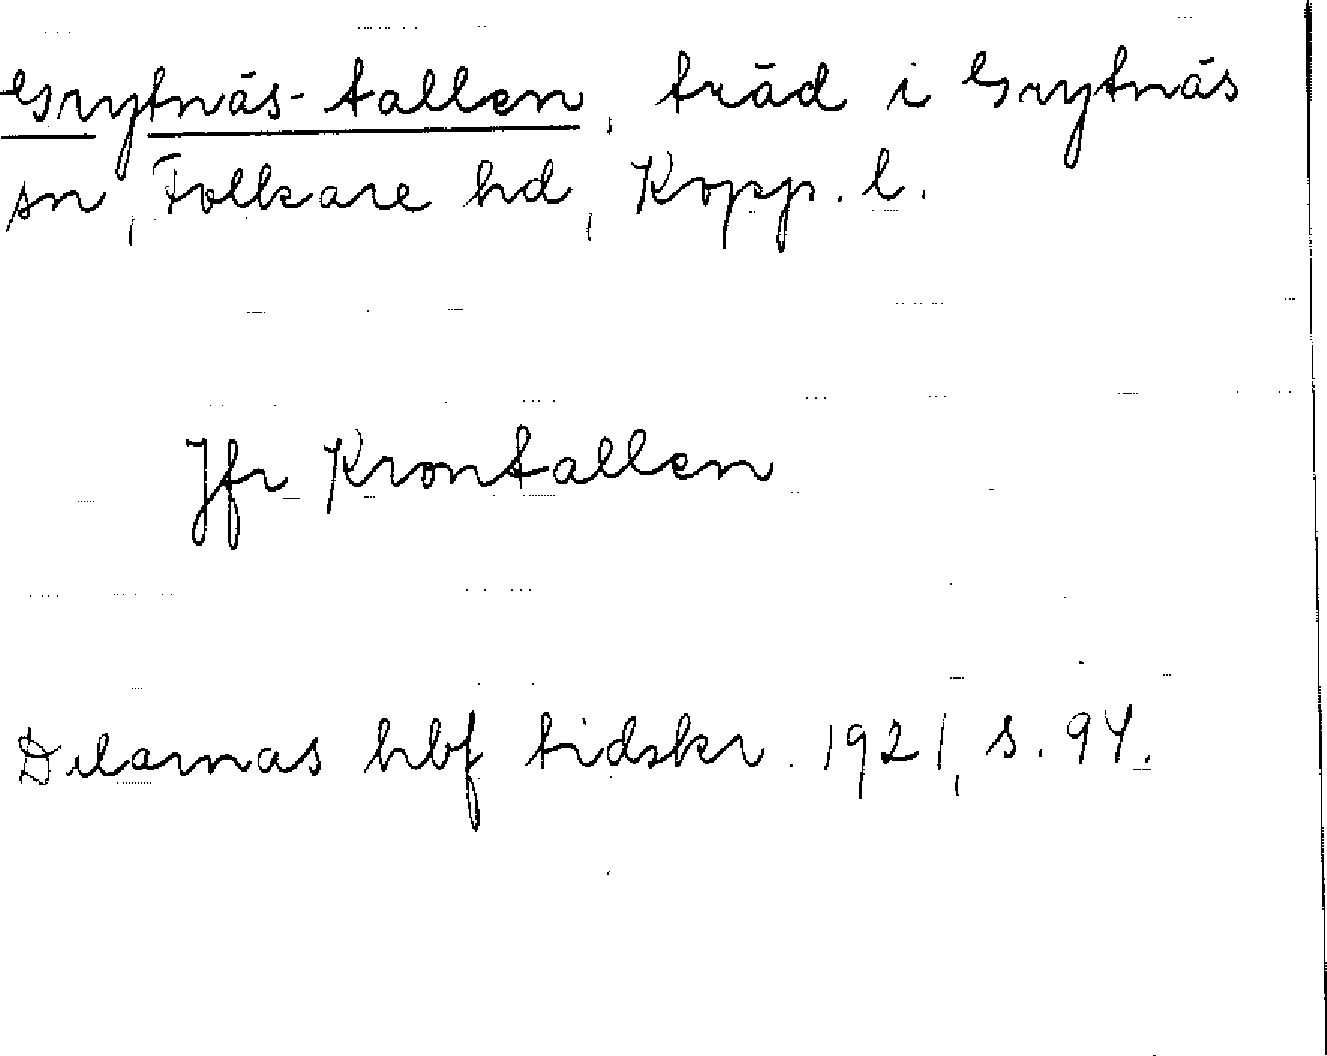 Grytnäs-tallen, träd i Grytnäs
sn, Folkare hd, Kopp. l.
Jfr Krontallen
Dalarnas hbf tidskr. 1921, s. 94.